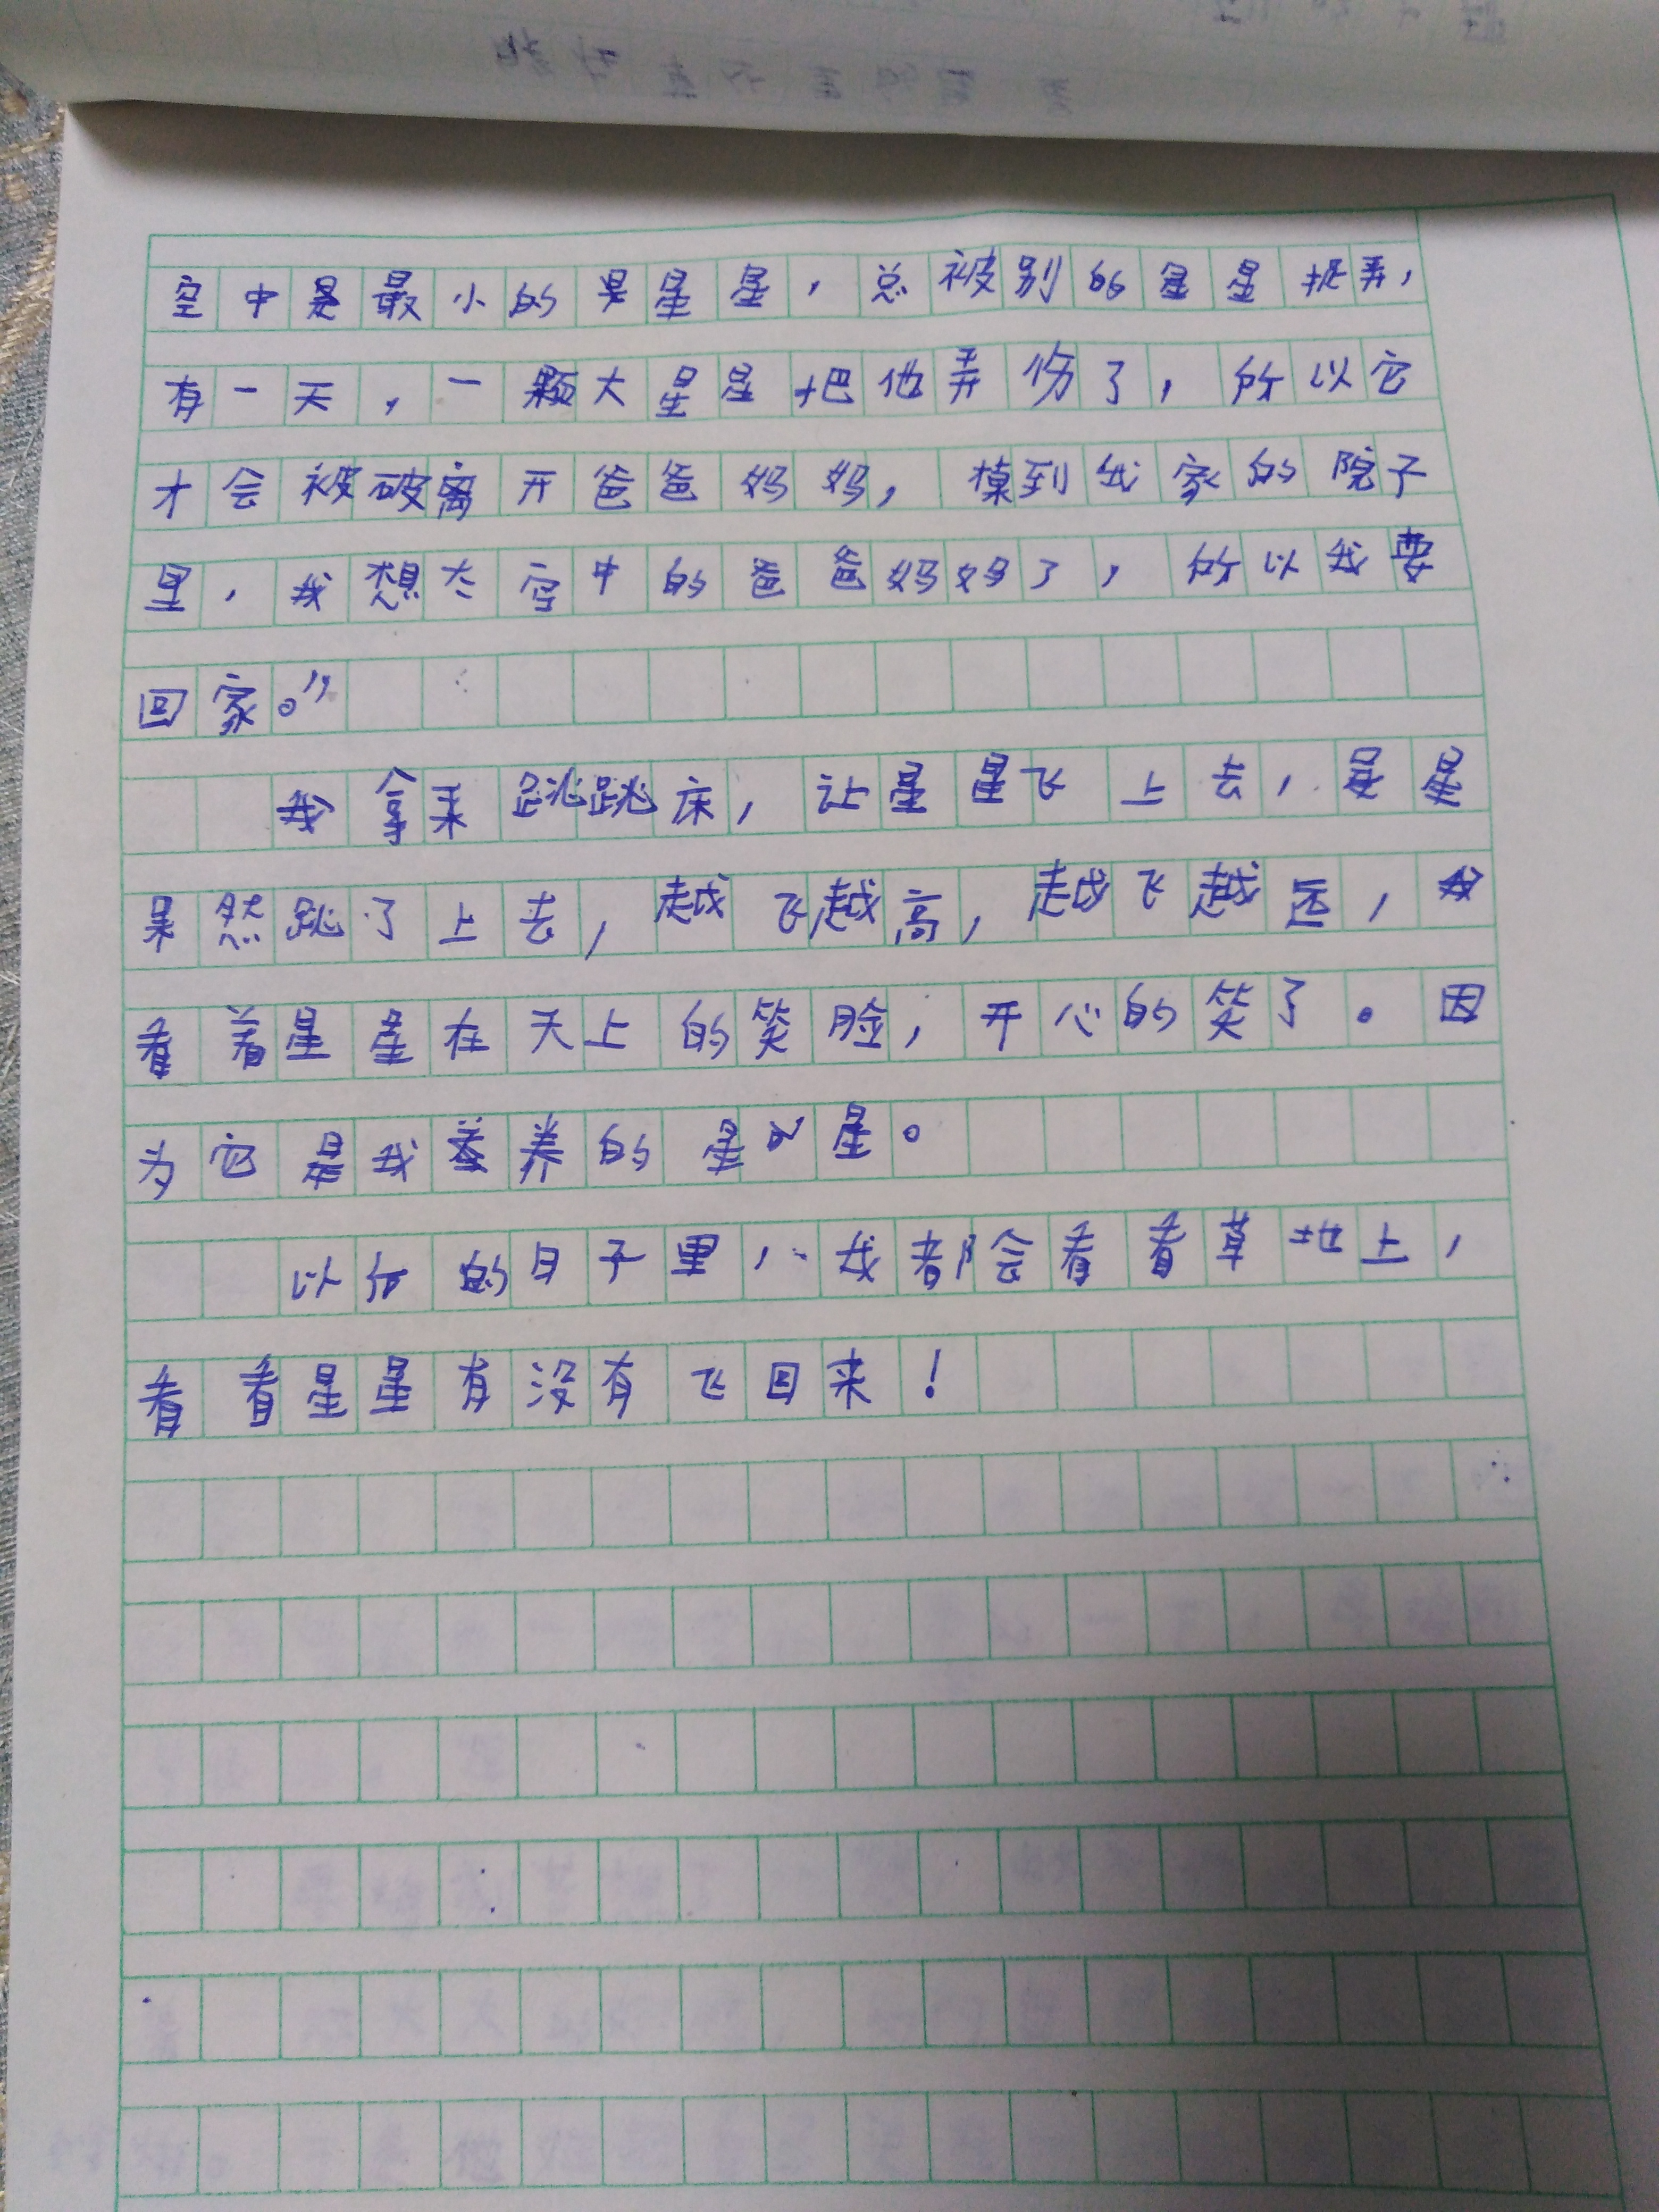 空中是最小的星星,总被别的星星捉弄,
有一天,一颗大星星把他弄伤了,所以它
才会被破离开爸爸妈妈,摸到我家的院子
里,我想太空中的爸爸妈妈了,所以我要
回家。”
我拿来跳跳床,让星星飞上去,星星
果然跳了上去,越飞越高,越飞越远,我
看着星星在天上的笑脸,开心的笑了。因
为它是我养的星星。
以后的日子里,我都会看看草地上,
看看星星有没有飞回来!